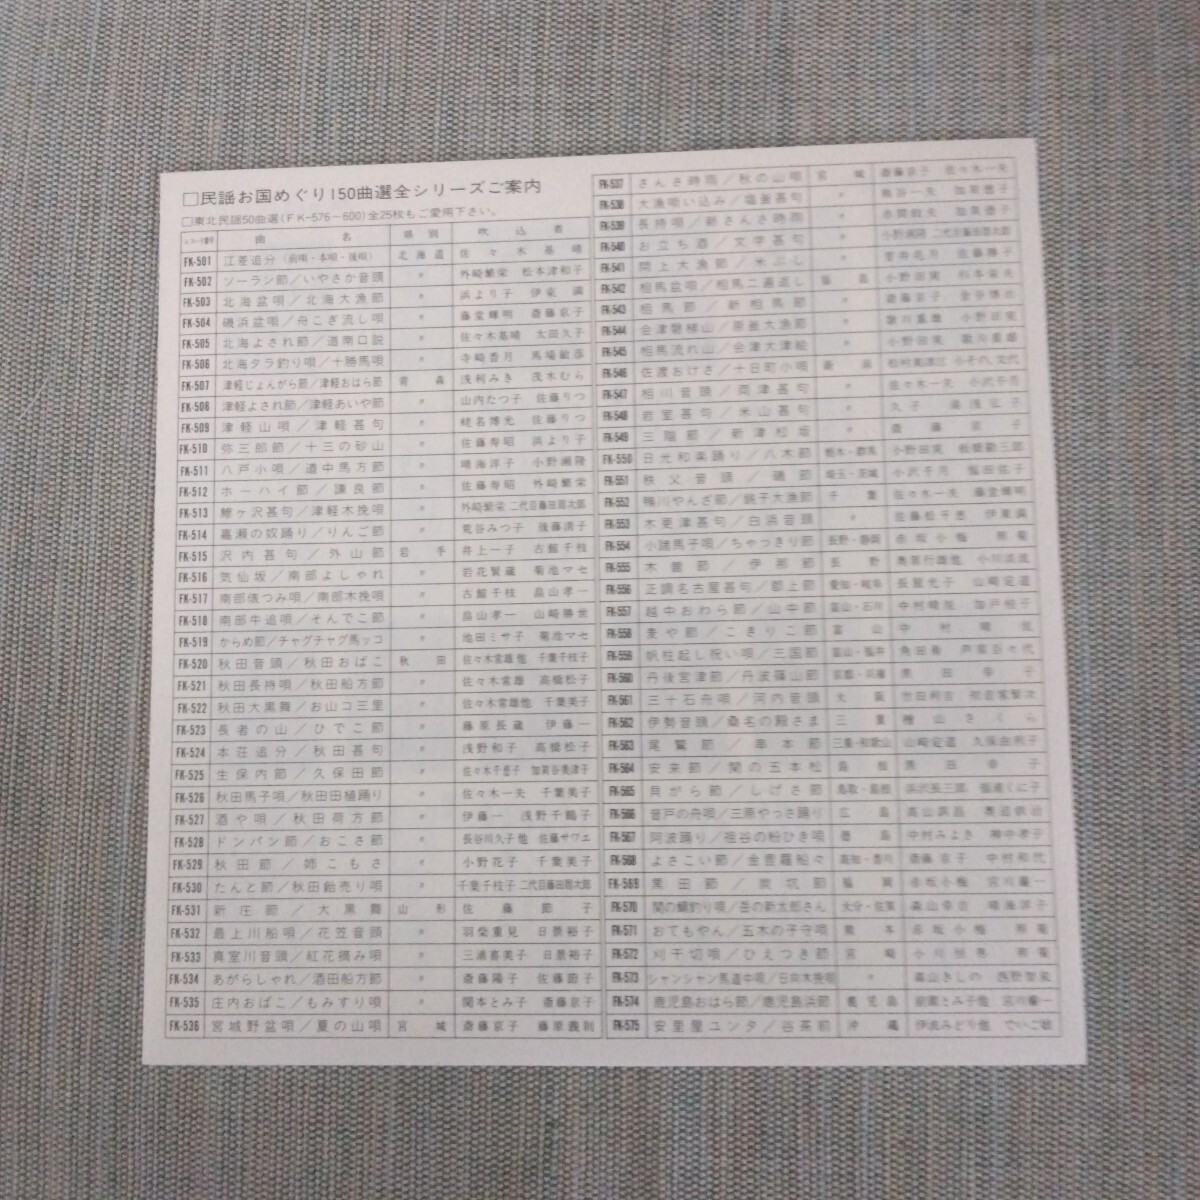 □民謡お国めぐり150曲選全シリーズご案内
□東北民謡50曲選(FK-576-600)全25枚もご愛用下さい。
曲名 県別 吹込者
FK-501 江差追分(前唄・本唄・後唄) 北海道 佐々木基晴
FK-502 ソーラン節/いやさか音頭 〃 外崎繁栄 松本津和子
FK-503 北海盆唄/北海大漁節 〃 浜より子 伊東満
FK-504 磯浜盆唄/舟こぎ流し唄 〃 藤堂輝明 斎藤京子
FK-505 北海よされ節/道南口説 〃 佐々木基晴 太田久子
FK-506 北海タラ釣り唄/十勝馬唄 〃 寺崎香月 馬場敏彦
FK-507 津軽じょんがら節/津軽おはら節 青森 浅利みき 茂木むら
FK-508 津軽よされ節/津軽あいや節 〃 山内たつ子 佐藤りつ
FK-509 津軽山唄/津軽甚句 〃 蛯名博光 佐藤りつ
FK-510 弥三郎節/十三の砂山 〃 佐藤寿昭 浜より子
FK-511 八戸小唄/道中馬方節 〃 晴海洋子 小野瀬隆
FK-512 ホーハイ節/謙良節 〃 佐藤寿昭 外崎繁栄
FK-513 鰺ヶ沢甚句/津軽木挽唄 〃 外崎繁栄 二代目藤田周次郎
FK-514 嘉瀬の奴踊り/りんご節 〃 荒谷みつ子 後藤清子
FK-515 沢内甚句/外山節 岩手 井上一子 古館千枝
FK-516 気仙坂/南部よしゃれ 〃 岩花賢蔵 菊池マセ
FK-517 南部俵つみ唄/南部木挽唄 〃 古館千枝 畠山孝一
FK-518 南部牛追唄/そんでこ節 〃 畠山孝一 山崎勝世
FK-519 からめ節/チャグチャグ馬ッコ 〃 池田ミサ子 菊池マセ
FK-520 秋田音頭/秋田おばこ 秋田 佐々木常雄他 千葉千枝子
FK-521 秋田長持唄/秋田船方節 〃 佐々木常雄 高橋松子
FK-522 秋田大黒舞/お山コ三里 〃 佐々木常雄他 千葉美子
FK-523 長者の山/ひでこ節 〃 藤原長蔵 伊藤一
FK-524 本荘追分/秋田甚句 〃 浅野和子 高橋松子
FK-525 生保内節/久保田節 〃 佐々木千恵子 加賀谷美津子
FK-526 秋田馬子唄/秋田田植踊り 〃 佐々木一夫 千葉美子
FK-527 酒や唄/秋田荷方節 〃 伊藤一 浅野千鶴子
FK-528 ドンパン節/おこさ節 〃 長谷川久子他 佐藤サワエ
FK-529 秋田節/姉こもさ 〃 小野花子 千葉美子
FK-530 たんと節/秋田飴売り唄 〃 千葉千枝子 二代目藤田周次郎
FK-531 新庄節/大黒舞 山形 佐藤節子
FK-532 最上川船唄/花笠音頭 〃 羽柴重見 日景裕子
FK-533 真室川音頭/紅花摘み唄 〃 三浦喜美子 日景裕子
FK-534 あがらしゃれ/酒田船方節 〃 斎藤陽子 佐藤節子
FK-535 庄内おばこ/もみすり唄 〃 関本とみ子 斎藤京子
FK-536 宮城野盆唄/夏の山唄 宮城 斎藤京子 藤原義則
FK-537 さんさ時雨/秋の山唄 宮城 斎藤京子 佐々木一夫
FK-538 大漁唄い込み/塩釜甚句 〃 熊谷一夫 加賀徳子
FK-539 長持唄/新さんさ時雨 〃 赤間政夫 加賀徳子
FK-540 お立ち酒/文字甚句 〃 小野瀬隆 二代目藤田周次郎
FK-541 閖上大漁節/米ぶし 〃
FK-542 相馬盆唄/相馬二遍返し 福島 小野田実 杉本栄夫
FK-543 相馬節/新相馬節 〃 斎藤京子
FK-544 会津磐梯山/原釜大漁節 〃 歌川重雄 小野田実
FK-545 相馬流れ山/会津大津絵 〃 小野田実 歌川重雄
FK-546 佐渡おけさ/十日町小唄 新潟
FK-547 相川音頭/両津甚句 〃 佐々木一夫 小沢千月
FK-548 岩室甚句/米山甚句 〃
FK-549 三階節/新津松坂 〃 斎藤京子
FK-550 日光和楽踊り/八木節 栃木・群馬 小野田実
FK-551 秩父音頭/磯節 埼玉・茨城 小沢千月
FK-552 鴨川やんざ節/銚子大漁節 千葉 佐々木一夫 藤堂輝明
FK-553 木更津甚句/白浜音頭 〃 佐藤松千恵 伊東満
FK-554 小諸馬子唄/ちゃっきり節 長野・静岡 赤坂小梅
FK-555 木曽節/伊那節 長野
FK-556 正調名古屋甚句/郡上節 愛知・岐阜 山崎定道
FK-557 越中おわら節/山中節 富山・石川
FK-558 麦や節/こきりこ節 富山
FK-559 帆柱起し祝い唄/三国節 富山・福井
FK-560 丹後宮津節/丹波篠山節 京都・兵庫 黒田幸子
FK-561 三十石舟唄/河内音頭 大阪
FK-562 伊勢音頭/桑名の殿さま 三重 檜山さくら
FK-563 尾鷲節/串本節 三重・和歌山 山崎定道 久保由利子
FK-564 安来節/関の五本松 島根 黒田幸子
FK-565 貝がら節/しげさ節 鳥取・島根 浜沢長三郎
FK-566 音戸の舟唄/三原やっさ踊り 広島
FK-567 阿波踊り/祖谷の粉ひき唄 徳島 中村みよき
FK-568 よさこい節/金毘羅船々 高知・香川 斎藤京子
FK-569 黒田節/炭坑節 福岡 赤坂小梅
FK-570 関の鯛釣り唄/岳の新太郎さん 大分・佐賀 晴海洋子
FK-571 おてもやん/五木の子守唄 熊本 赤坂小梅
FK-572 刈干切唄/ひえつき節 宮崎
FK-573 シャンシャン馬道中唄/日向木挽唄 〃
FK-574 鹿児島おはら節/鹿児島浜節 鹿児島
FK-575 安里屋ユンタ/谷茶節 沖縄